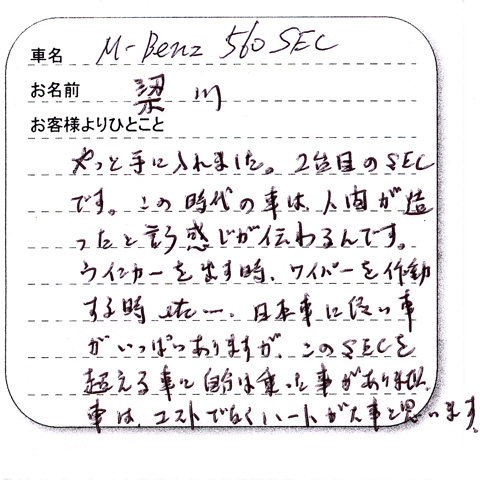 車名 M-Benz 560 SEC
お名前 梁川
お客様よりひとこと
やっと手に入れました。2台目のSEC
です。この時代の車は人間が造
ったと言う感じが伝わるんです。
ウインカーを出す時、ワイパーを作動
する時 etc…、日本車に良い車
がいっぱいありますが、このSECを
超える車に自分は乗った事がありません。
車は、コストでなくハートが大事と思います。